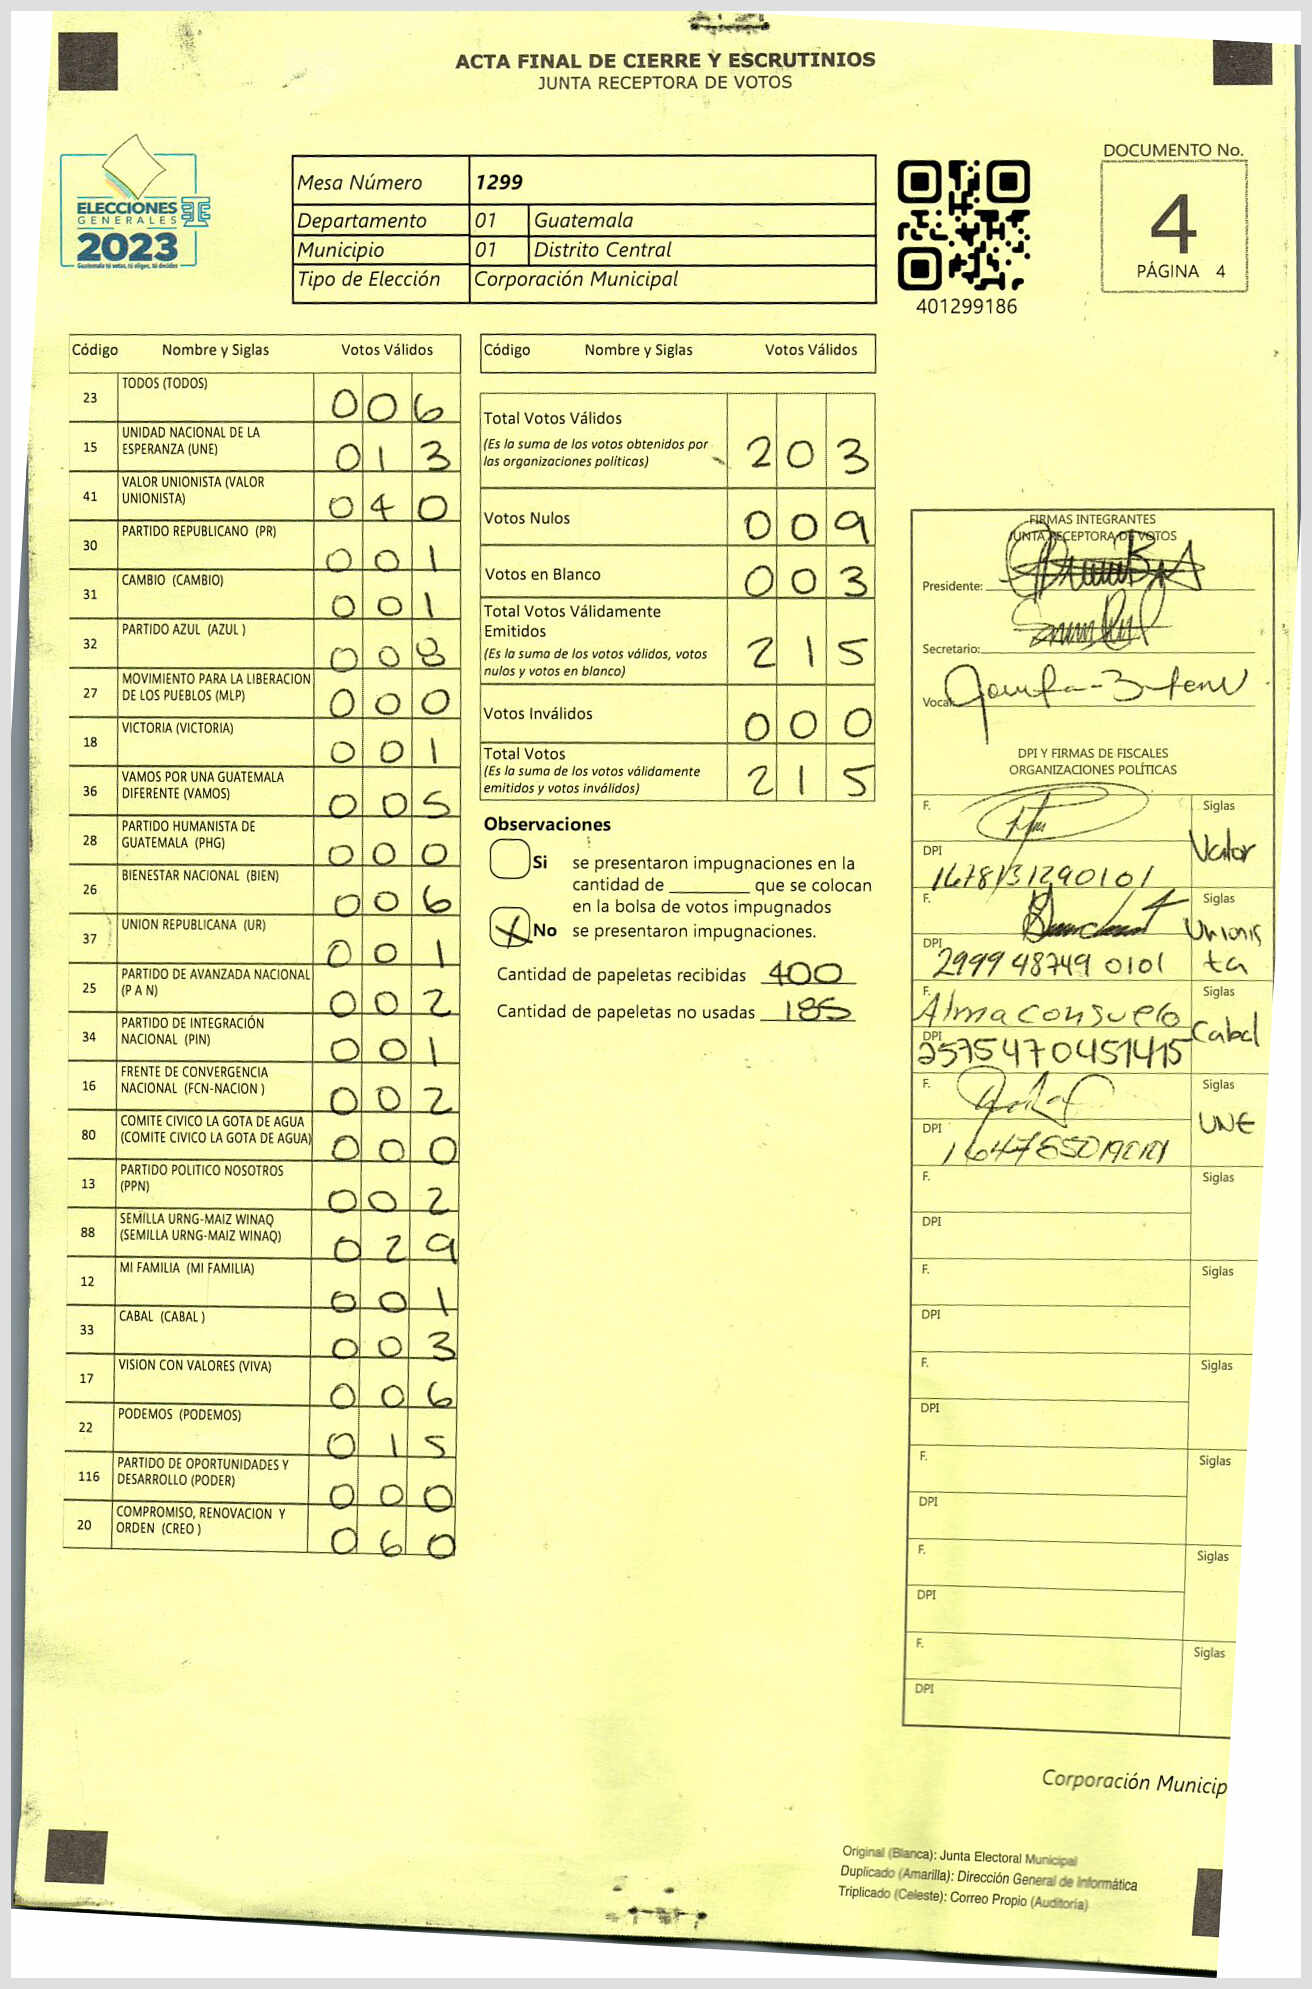 ACTA FINAL DE CIERRE Y ESCRUTINIOS
JUNTA RECEPTORA DE VOTOS
ELECCIONES
GENERALES
2023
Guatemala tú votas, tú eliges, tú decides
Mesa Número 1299
Departamento 01 Guatemala
Municipio 01 Distrito Central
Tipo de Elección Corporación Municipal
401299186
DOCUMENTO No.
4
PÁGINA 4
Código Nombre y Siglas Votos Válidos
23 TODOS (TODOS) 006
15 UNIDAD NACIONAL DE LA
ESPERANZA (UNE) 013
41 VALOR UNIONISTA (VALOR
UNIONISTA) 040
30 PARTIDO REPUBLICANO (PR) 001
31 CAMBIO (CAMBIO) 001
32 PARTIDO AZUL (AZUL ) 008
27 MOVIMIENTO PARA LA LIBERACION
DE LOS PUEBLOS (MLP) 000
18 VICTORIA (VICTORIA) 001
36 VAMOS POR UNA GUATEMALA
DIFERENTE (VAMOS) 005
28 PARTIDO HUMANISTA DE
GUATEMALA (PHG) 000
26 BIENESTAR NACIONAL (BIEN) 006
37 UNION REPUBLICANA (UR) 001
25 PARTIDO DE AVANZADA NACIONAL
(P A N) 002
34 PARTIDO DE INTEGRACIÓN
NACIONAL (PIN) 001
16 FRENTE DE CONVERGENCIA
NACIONAL (FCN-NACION ) 002
80 COMITE CIVICO LA GOTA DE AGUA
(COMITE CIVICO LA GOTA DE AGUA) 000
13 PARTIDO POLITICO NOSOTROS
(PPN) 002
88 SEMILLA URNG-MAIZ WINAQ
(SEMILLA URNG-MAIZ WINAQ) 029
12 MI FAMILIA (MI FAMILIA) 001
33 CABAL (CABAL ) 003
17 VISION CON VALORES (VIVA) 006
22 PODEMOS (PODEMOS) 015
116 PARTIDO DE OPORTUNIDADES Y
DESARROLLO (PODER) 000
20 COMPROMISO, RENOVACION Y
ORDEN (CREO ) 060
Código Nombre y Siglas Votos Válidos
Total Votos Válidos
(Es la suma de los votos obtenidos por
las organizaciones políticas) 203
Votos Nulos 009
Votos en Blanco 003
Total Votos Válidamente
Emitidos
(Es la suma de los votos válidos, votos
nulos y votos en blanco) 215
Votos Inválidos 000
Total Votos
(Es la suma de los votos válidamente
emitidos y votos inválidos) 215
Observaciones
Si se presentaron impugnaciones en la
cantidad de ________ que se colocan
en la bolsa de votos impugnados
X No se presentaron impugnaciones.
Cantidad de papeletas recibidas 400
Cantidad de papeletas no usadas 185
FIRMAS INTEGRANTES
JUNTA RECEPTORA DE VOTOS
Presidente:
Secretario:
Vocal:
DPI Y FIRMAS DE FISCALES
ORGANIZACIONES POLÍTICAS
F. Siglas
Valor
DPI
1678131290101
F. Siglas
Unionis
ta
DPI
2999 48749 0101
F. Alma Consuelo Siglas
Cabal
DPI
2575470451415
F. Siglas
UNE
DPI
F. Siglas
DPI
F. Siglas
DPI
F. Siglas
DPI
F. Siglas
DPI
F. Siglas
DPI
F. Siglas
DPI
Corporación Municip
Original (Blanca): Junta Electoral Municipal
Duplicado (Amarilla): Dirección General de Informática
Triplicado (Celeste): Correo Propio (Auditoría)